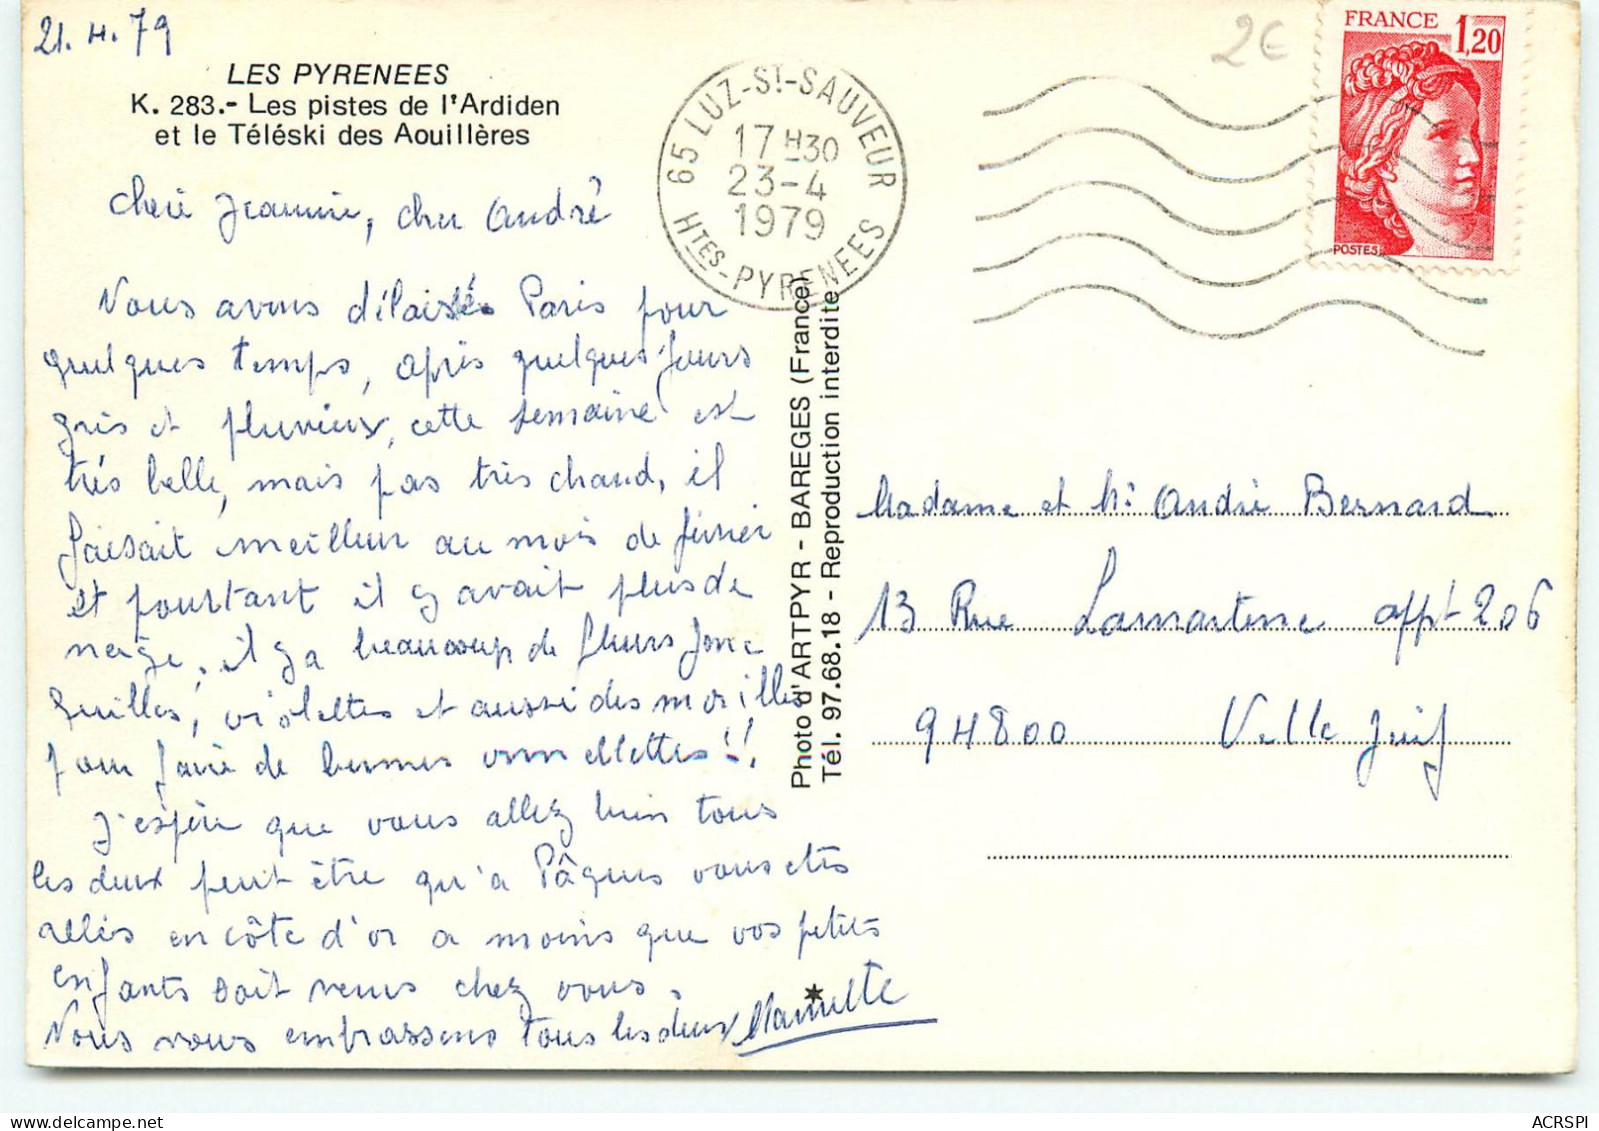 21.4.79
LES PYRENEES
K. 283.- Les pistes de l'Ardiden
et le Téléski des Aouillères
65 LUZ-St-SAUVEUR
17 H30
23-4
1979
Htes-PYRENEES
2€
FRANCE 1,20
POSTES
Chère Jeannine, cher André
Nous avons délaissés Paris pour
quelques temps, après quelques jours
gris et pluvieux, cette semaine est
très belle, mais pas très chaud, il
faisait meilleur au mois de février
et pourtant il y avait plus de
neige. il y a beaucoup de fleurs Jonc
quilles, violettes et aussi des morilles
pour faire de bonnes ommellettes!!
J'espère que vous allez bien tous
les deux peut être qu'à Pâques vous etes
allés en côte d'or a moins que vos petits
enfants soit venus chez vous.
Nous vous embrassons tous les deux
Photo d'ARTPYR - BAREGES (France)
Tél. 97.68.18 - Reproduction interdite
Madame et Mr André Bernard
13 Rue Lamartine appt 206
94800 Ville Juif
ACRSPI